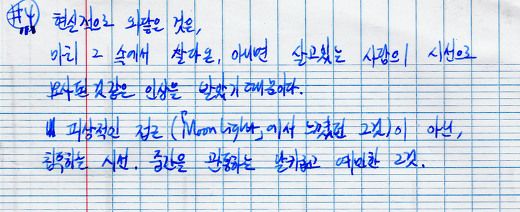 #4 현실적으로 와닿은 것은,
마치 그 속에서 살다온, 아니면 살고있는 사람의 시선으로
묘사된 것같은 인상을 받았기 때문이다.
피상적인 접근 (「Moon Light」에서 느꼈던 그것)이 아닌,
침투하는 시선. 중간을 관통하는 날카롭고 예민한 그것.